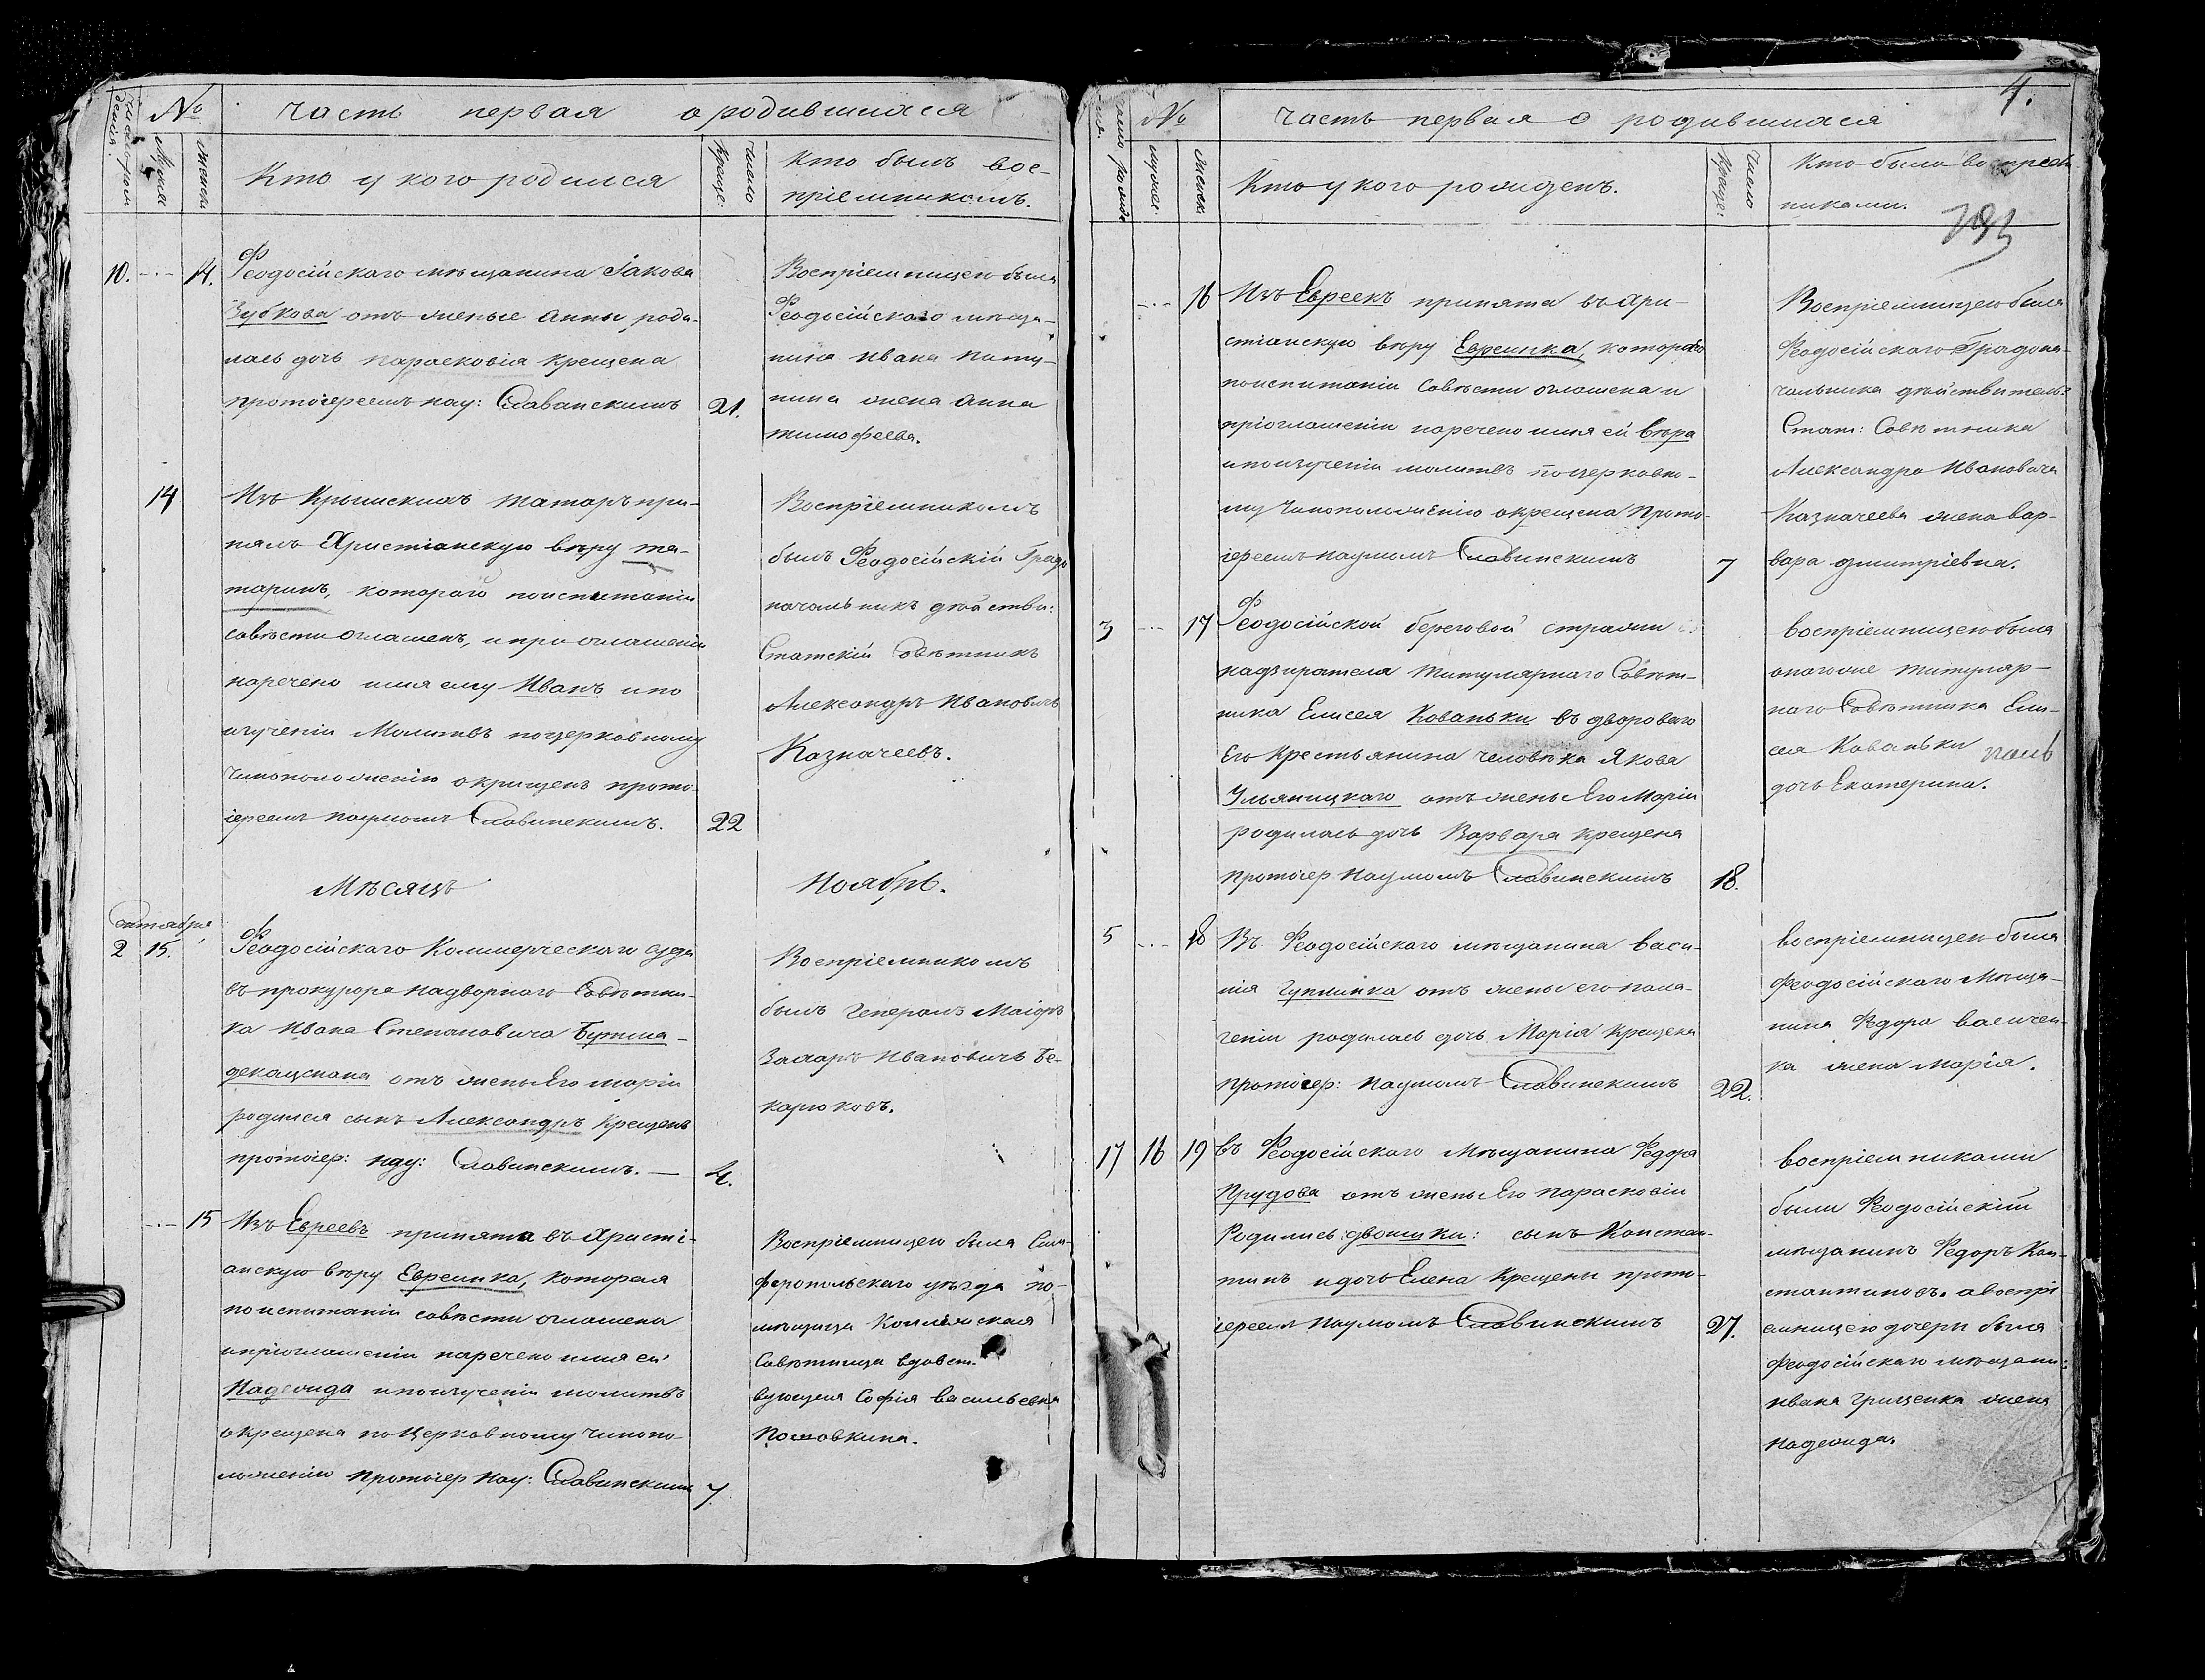 № часть первая о родившихся
число рожде
Мужск
женск
Кто у кого родился
число креще:
Кто былъ вос-
пріемникомъ.
10. -·- 14. Феодосійскаго мѣщанина Іакова
Зубкова отъ жены Анны роди-
лась дочь Парасковія крещена
протоіереемъ нау: Славинскимъ 21.
Воспріемницею была
Феодосійскаго мѣща-
нина Ивана
жена Анна
тимофеева.
14 Изъ Крымскихъ татаръ при-
нялъ Христіанскую вѣру та-
таринъ, котораго поиспытаніи
совѣсти оглашенъ, и при оглашеніи
наречено имя ему Иванъ и по
изученіи Молитвъ поцерковному
чиноположенію окрищенъ прото-
іереемъ наумомъ Славинскимъ. 22
Воспріемникомъ
былъ Феодосійскій Градо
начальникъ дѣйстви:
Статскій Совѣтникъ
Александръ Ивановичъ
Казначеевъ.
Мѣсяцъ Ноябрь.
Октября
2 15. Феодосійскаго Коммерческаго суда
въ прокурора надворнаго Совѣтни-
ка Ивана Степановича
отъ жены Его Маріи
родился сынъ Александръ Крещенъ
протоіер: нау: Славинскимъ. — 4.
Воспріемникомъ
былъ Генералъ Маіоръ
Захаръ Ивановичъ Бе-
карюковъ.
-·- 15 Изъ Евреевъ принята въ Христі-
анскую вѣру Евреинка, которая
поиспытаніи совѣсти оглашена
ипріоглашеніи наречено имя ей
Надежида ипоизученіи молитвъ
окрещена по Церковному чинопо-
ложенію протоіер нау: Славинскимъ 7.
Воспріемницею была Сим-
феропольскаго уѣзда по-
мѣщица Коллежская
Совѣтница вдовст-
вующая Софія васильевна
Пошовкина.
4.
№ часть первая о родившихся
число рожде
нія.
мужск:
женск:
Кто у кого рожденъ.
Число креще:
Кто были воспріем
никами.
-·- 16 Изъ Евреекъ принята въ Хри-
стіанскую вѣру Евреинка, котораго
поиспытаніи Совѣсти оглашена и
пріоглашеніи наречено имя ей Вѣра
ипоизученіи молитвъ поцерковно-
му Чиноположенію окрещена Прото-
іереемъ наумомъ Славинскимъ 7
Воспріемницею была
Феодосійскаго Градона-
чальника дѣйствитель:
Стат: Совѣтника
Александра Ивановича
Казначеева жена вар-
вара дмитріевна.
3 -·- 17 Феодосійской береговой стражи
надзирателя титулярнаго Совѣт-
ника Елисея Кованьки въ двороваго
Его Крестьянина человѣка Якова
Ульяницкаго отъ жены Его Маріи
родилась дочь Варвара крещена
протоіер наумомъ Славинскимъ 18.
воспріемницею была
оногожне титуляр-
наго Совѣтника Ели-
сея Кованьки
дочь Екатерина.
5 -·- 18 Въ Феодосійскаго мѣщанина Васи-
лія отъ жены его пала-
геніи родилась дочь Марія Крещена
протоіер: наумомъ Славинскимъ 22.
воспріемницею была
феодосійскаго Мѣща-
нина Федора
жена Марія.
17 16 19 въ Феодосійскаго Мѣщанина Федора
Прудова отъ жены Его Парасковіи
Родились: двошки: сынъ Констан-
тинъ идочь Елена Крещены прото-
іереемъ наумомъ Славинскимъ 27.
воспріемниками
были Феодосійскій
мѣщанинъ Федоръ Кон-
стантиновъ. авоспрі
емницею дочери была
феодосійскаго мѣщани:
ивана Грищенка жена
надежида.